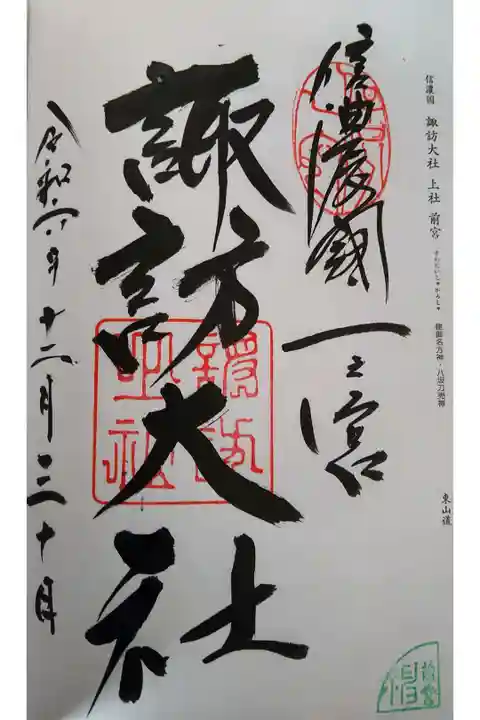 信濃國 諏訪大社 上社 前宮
すわたいしゃかみしゃ
建御名方神・八坂刀売神
東山道
信濃國
一之宮
諏訪大社
令和六年十二月三十日